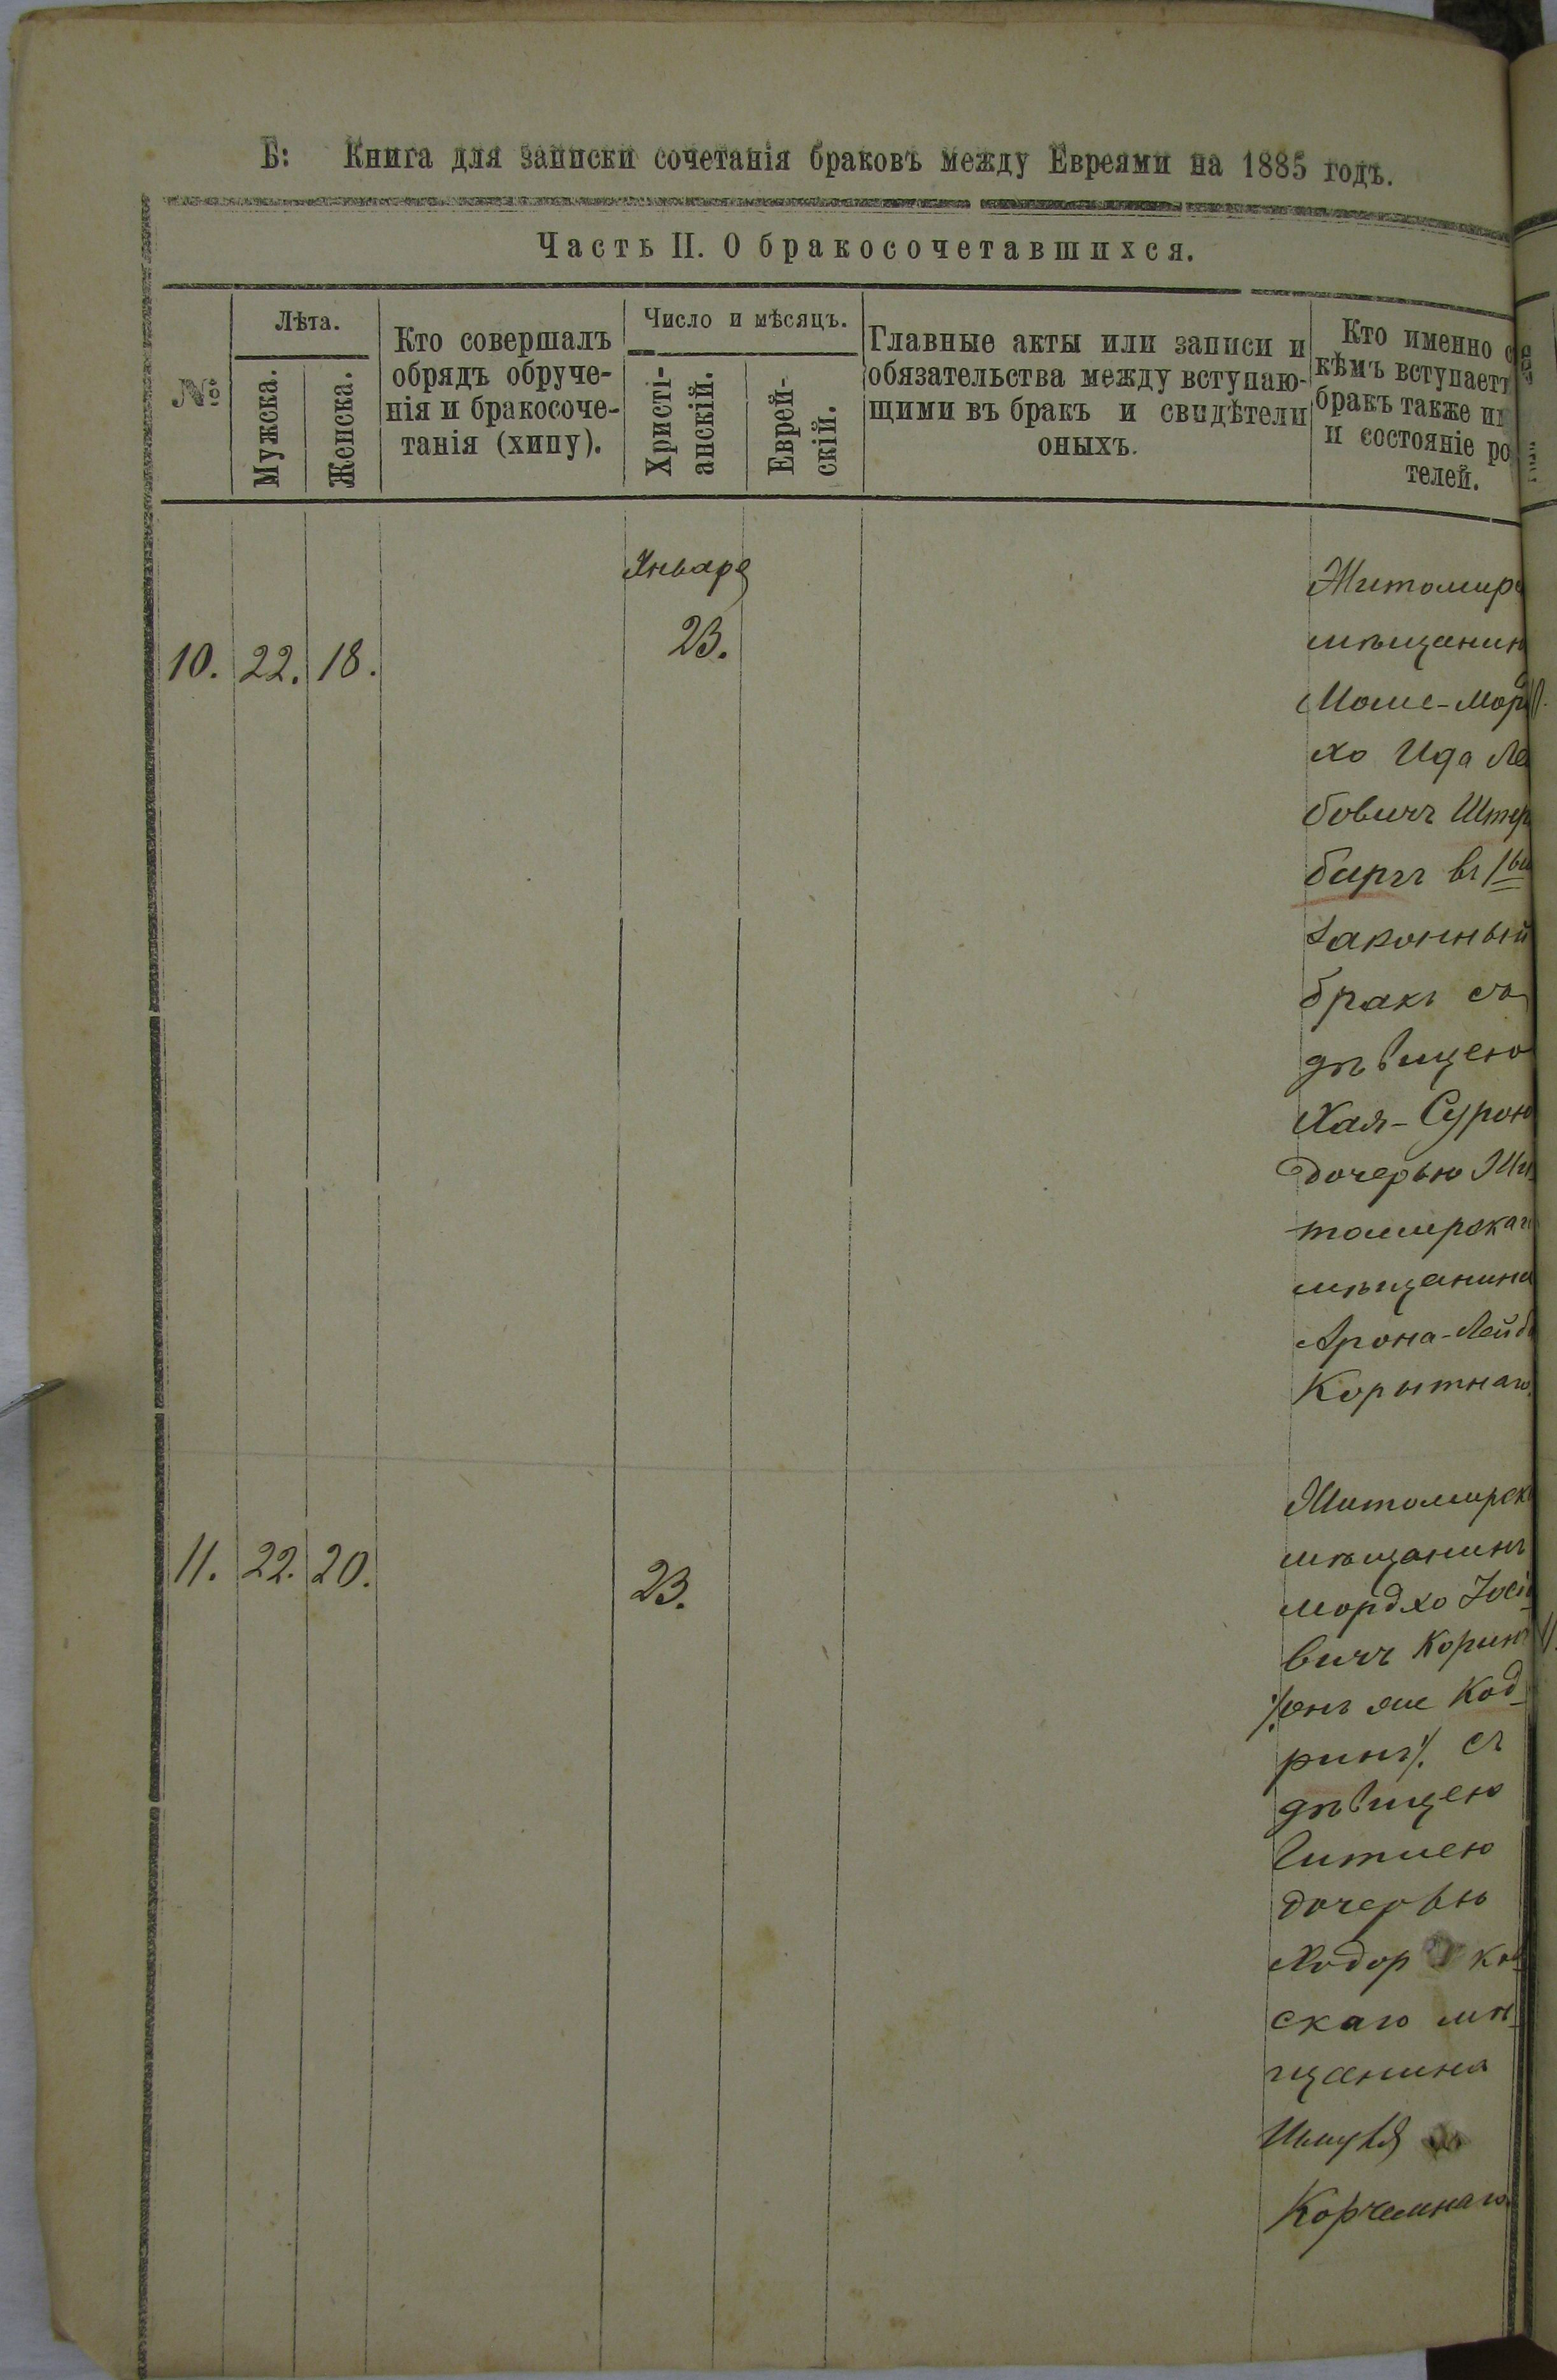 Б: Книга для записки сочетанія браковъ между Евреями на 1885 годъ.
Часть II. О бракосочетавшихся.
№
Лѣта.
Мужска.
Женска.
Кто совершалъ
обрядъ обруче-
нія и бракосоче-
танія (хипу).
Число и мѣсяцъ.
Христі-
анскій.
Еврей-
скій.
Главные акты или записи и
обязательства между вступаю-
щими въ бракъ и свидѣтели
оныхъ.
Кто именно с
кѣмъ вступаетъ
бракъ также и
и состояніе ро
телей.
Января
10. 22. 18. 23.
Житомирс
мѣщанинъ
Моше-Морд
хо Ида Ле
бовичъ Штер
бергъ въ 1вы
законный
бракъ со
дѣвицею
Хая-Сурою
дочерью Жи
томирскаго
мѣщанина
Арона-Лейб
Корытнаго.
11. 22. 20. 23.
Житомирск
мѣщанинъ
Мордхо Іосі
вичъ Корин
онъ же Код-
ринъ съ
дѣвицею
Гитлею
дочерью
Ходор ко
скаго мѣ-
щанина
Корчемнаго